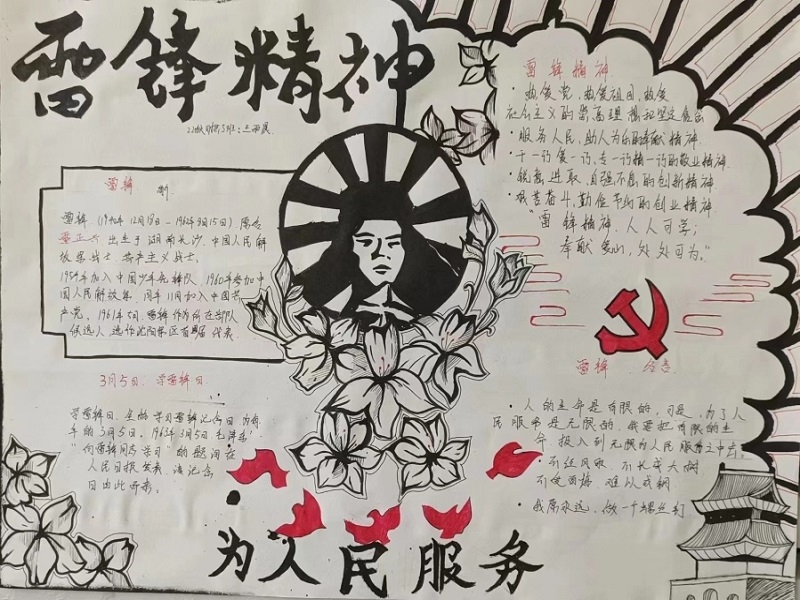 雷锋精神
雷锋
雷锋（1940年12月18日—1962年8月15日），原名
雷正兴，出生于湖南长沙，中国人民解
放军战士、共产主义战士。
1954年加入中国少年先锋队，1960年参加中
国人民解放军，同年11月加入中国共
产党。1961年5月，雷锋作为所在部队
候选人，选作沈阳军区首届代表
3月5日：学雷锋日
学雷锋日，全称学习雷锋纪念日，为每
年的3月5日，1963年3月5日毛泽东
“向雷锋同志学习”的题词在
人民日报发表，该纪念
日由此而来。
雷锋精神
·热爱党、热爱祖国、热爱
社会主义的崇高理想和坚定信念
·服务人民、助人为乐的奉献精神
·干一行爱一行、专一行精一行的敬业精神
·锐意进取、自强不息的创新精神
·艰苦奋斗、勤俭节约的创业精神
“雷锋精神，人人可学；
奉献爱心，处处可为。”
雷锋
·人的生命是有限的，可是，为了人
民服务是无限的，我要把有限的生
命，投入到无限为人民服务之中去。
·不经风吹，不长成大树
不受百炼，难以成钢
·我愿永远，做一个螺丝钉
为人民服务